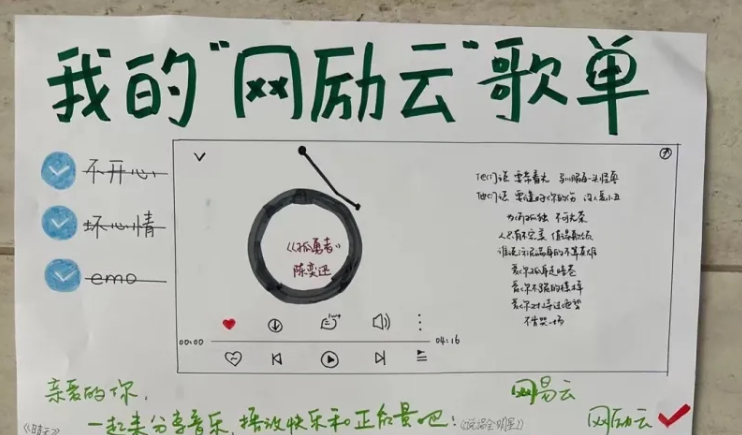 我的"网励云"歌单
不开心
坏心情
emo
《孤勇者》
陈奕迅
00:00
04:16
他们说 要带着光
他们说 要
为何孤独 不可光荣
人只有不完美 值得歌颂
谁说污泥满身的不算英雄
爱你孤身走暗巷
爱你不跪的模样
爱你对峙过绝望
不肯哭一场
亲爱的你，
一起来分享音乐，播放快乐和正能量吧！
网易云
网励云
《晴天》